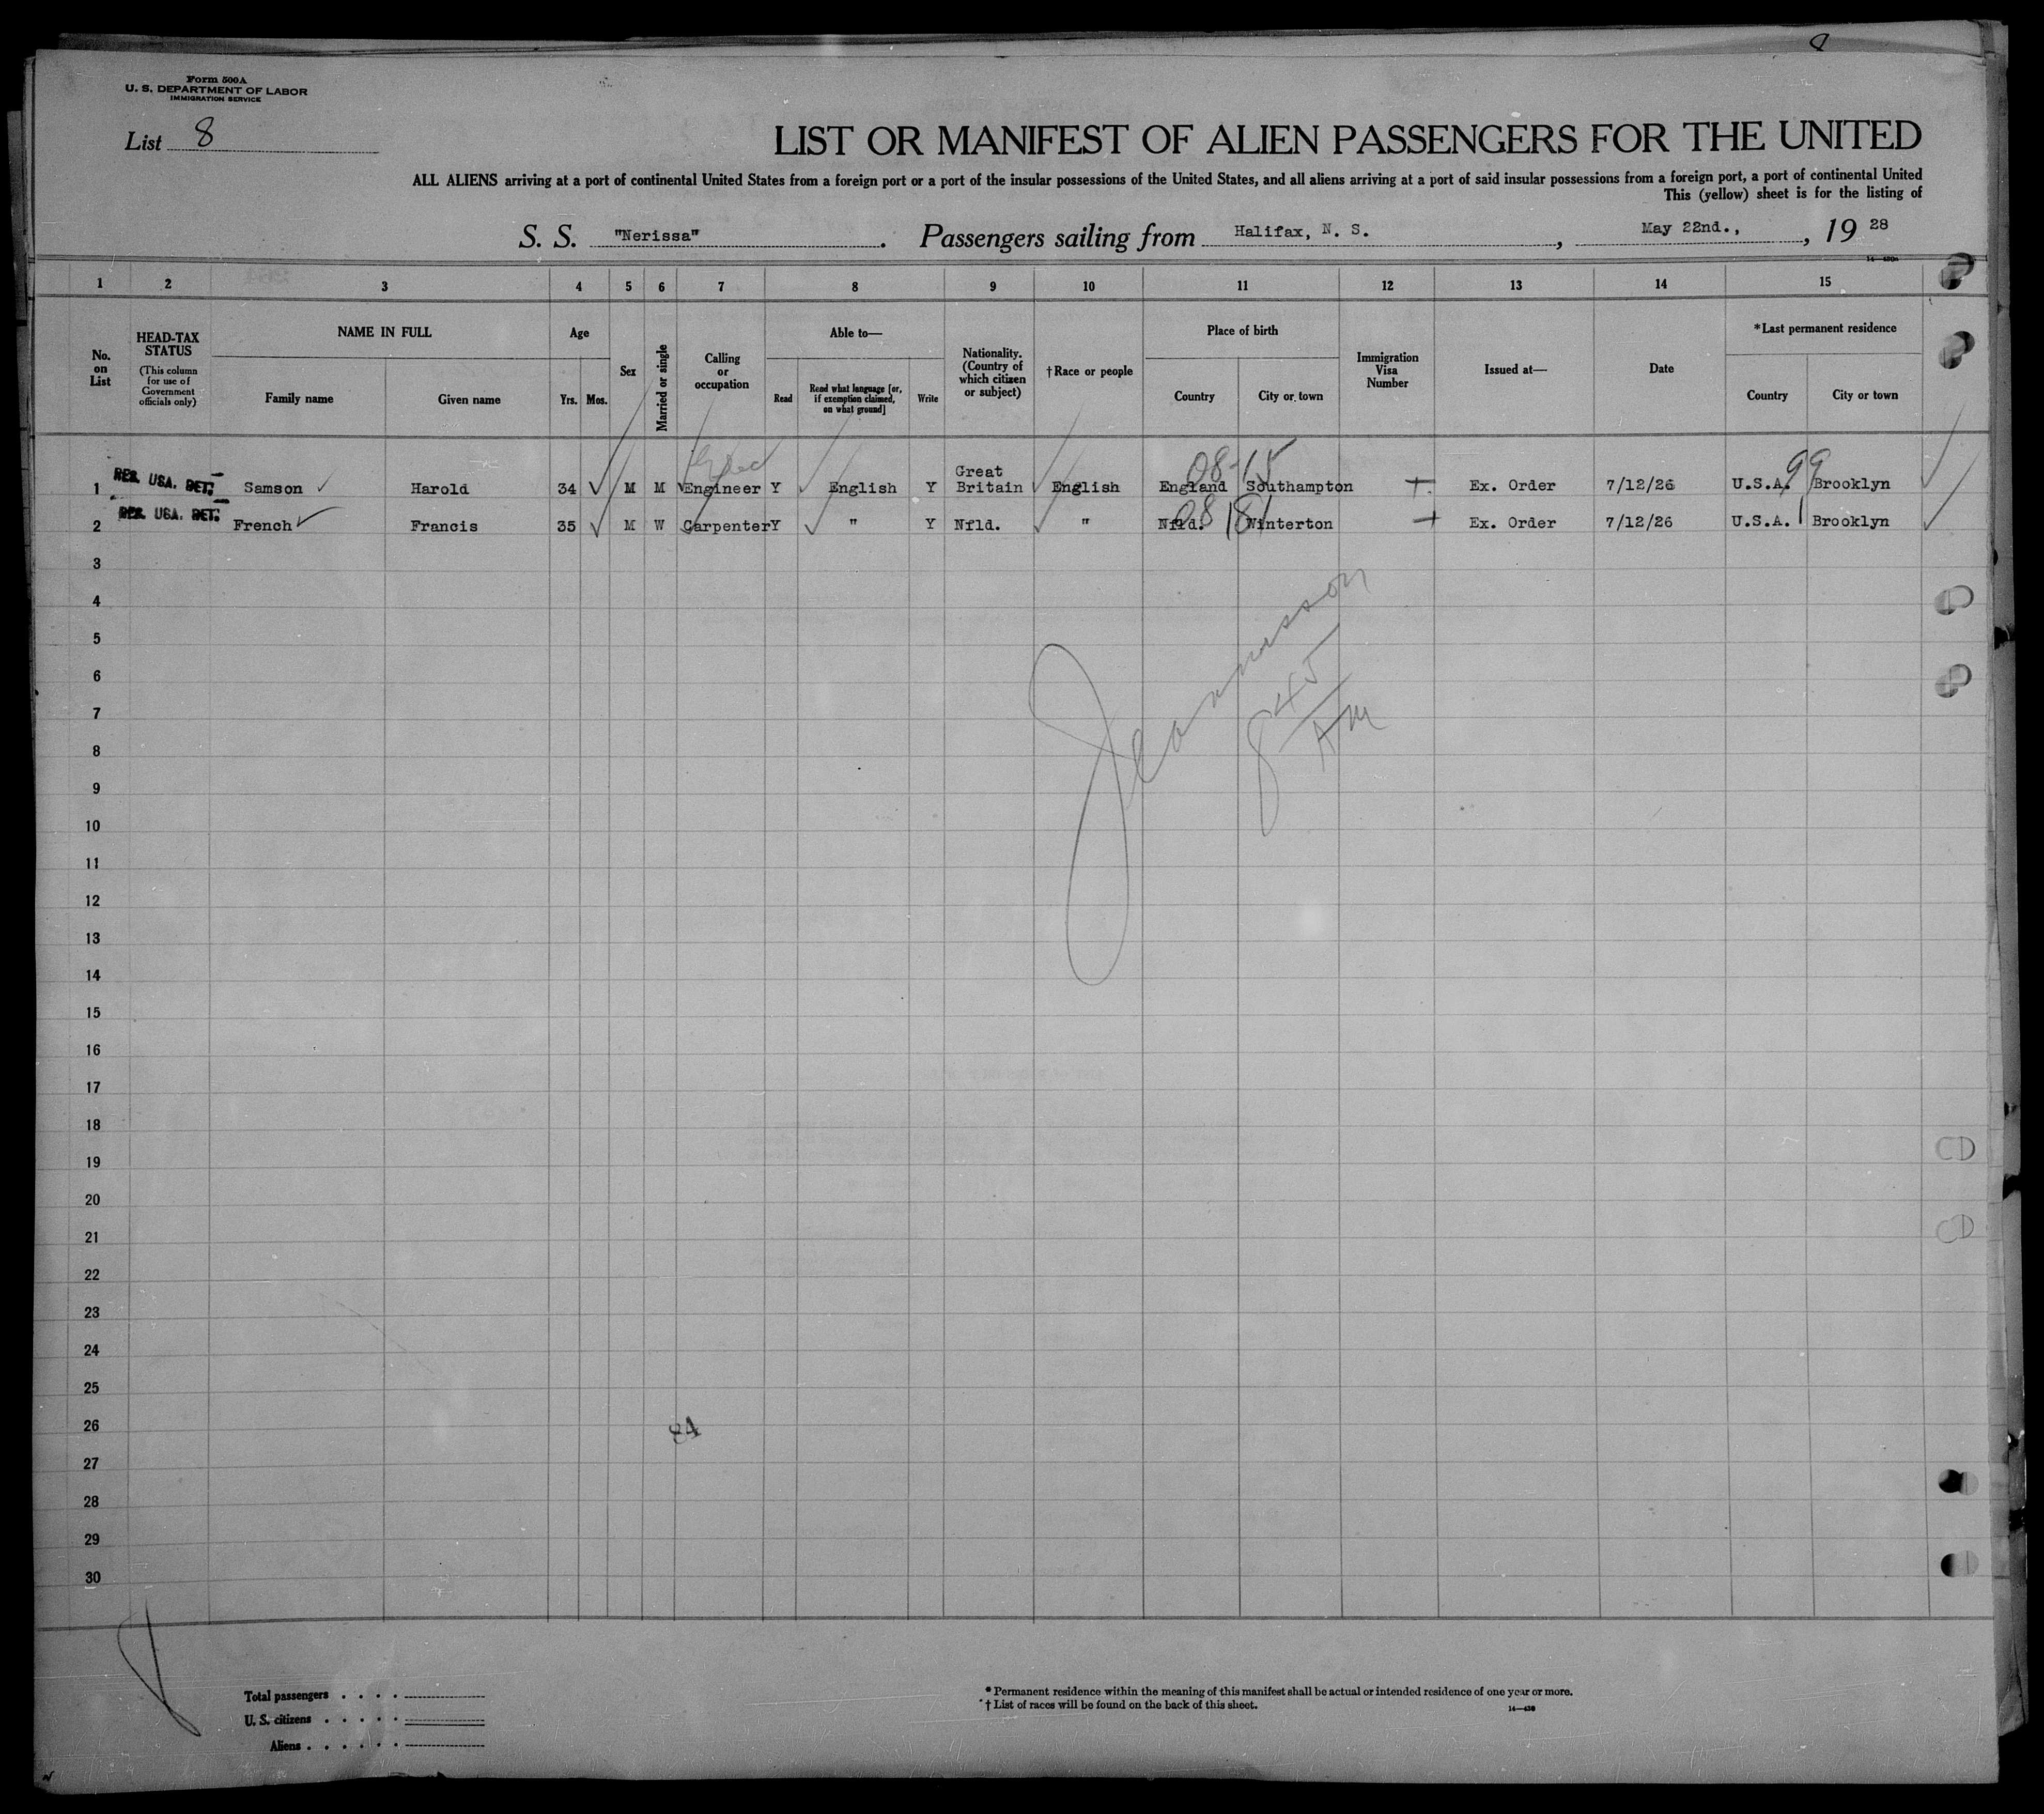 8
Form 500A
U. S. DEPARTMENT OF LABOR
IMMIGRATION SERVICE
List 8
LIST OR MANIFEST OF ALIEN PASSENGERS FOR THE UNITED
ALL ALIENS arriving at a port of continental United States from a foreign port or a port of the insular possessions of the United States, and all aliens arriving at a port of said insular possessions from a foreign port, a port of continental United
This (yellow) sheet is for the listing of
S. S. "Nerissa". Passengers sailing from Halifax, N. S., May 22nd., , 19 28
1 2 3 4 5 6 7 8 9 10 11 12 13 14 15
No. on List
HEAD-TAX STATUS (This column for use of Government officials only)
NAME IN FULL
Family name Given name
Age
Yrs. Mos.
Sex
Married or single
Calling or occupation
Able to—
Read Read what language [or, if exemption claimed, on what ground] Write
Nationality. (Country of which citizen or subject)
†Race or people
Place of birth
Country City or town
Immigration Visa Number
Issued at—
Date
*Last permanent residence
Country City or town
08-15 99
1 RES. USA. DET. Samson Harold 34 M M Engineer Y English Y Great Britain English England Southampton Ex. Order 7/12/26 U.S.A. Brooklyn
08 181
2 RES. USA. DET. French Francis 35 M W Carpenter Y " Y Nfld. " Nfld. Winterton Ex. Order 7/12/26 U.S.A. Brooklyn
3
4
5
6
7
8
9
10
11
12
13
14
15
16
17
18
19
20
21
22
23
24
25
26
27
28
29
30
8 45 AM
84
Total passengers . . . .
U. S. citizens . . . . .
Aliens . . . . . .
* Permanent residence within the meaning of this manifest shall be actual or intended residence of one year or more.
† List of races will be found on the back of this sheet.
14—430